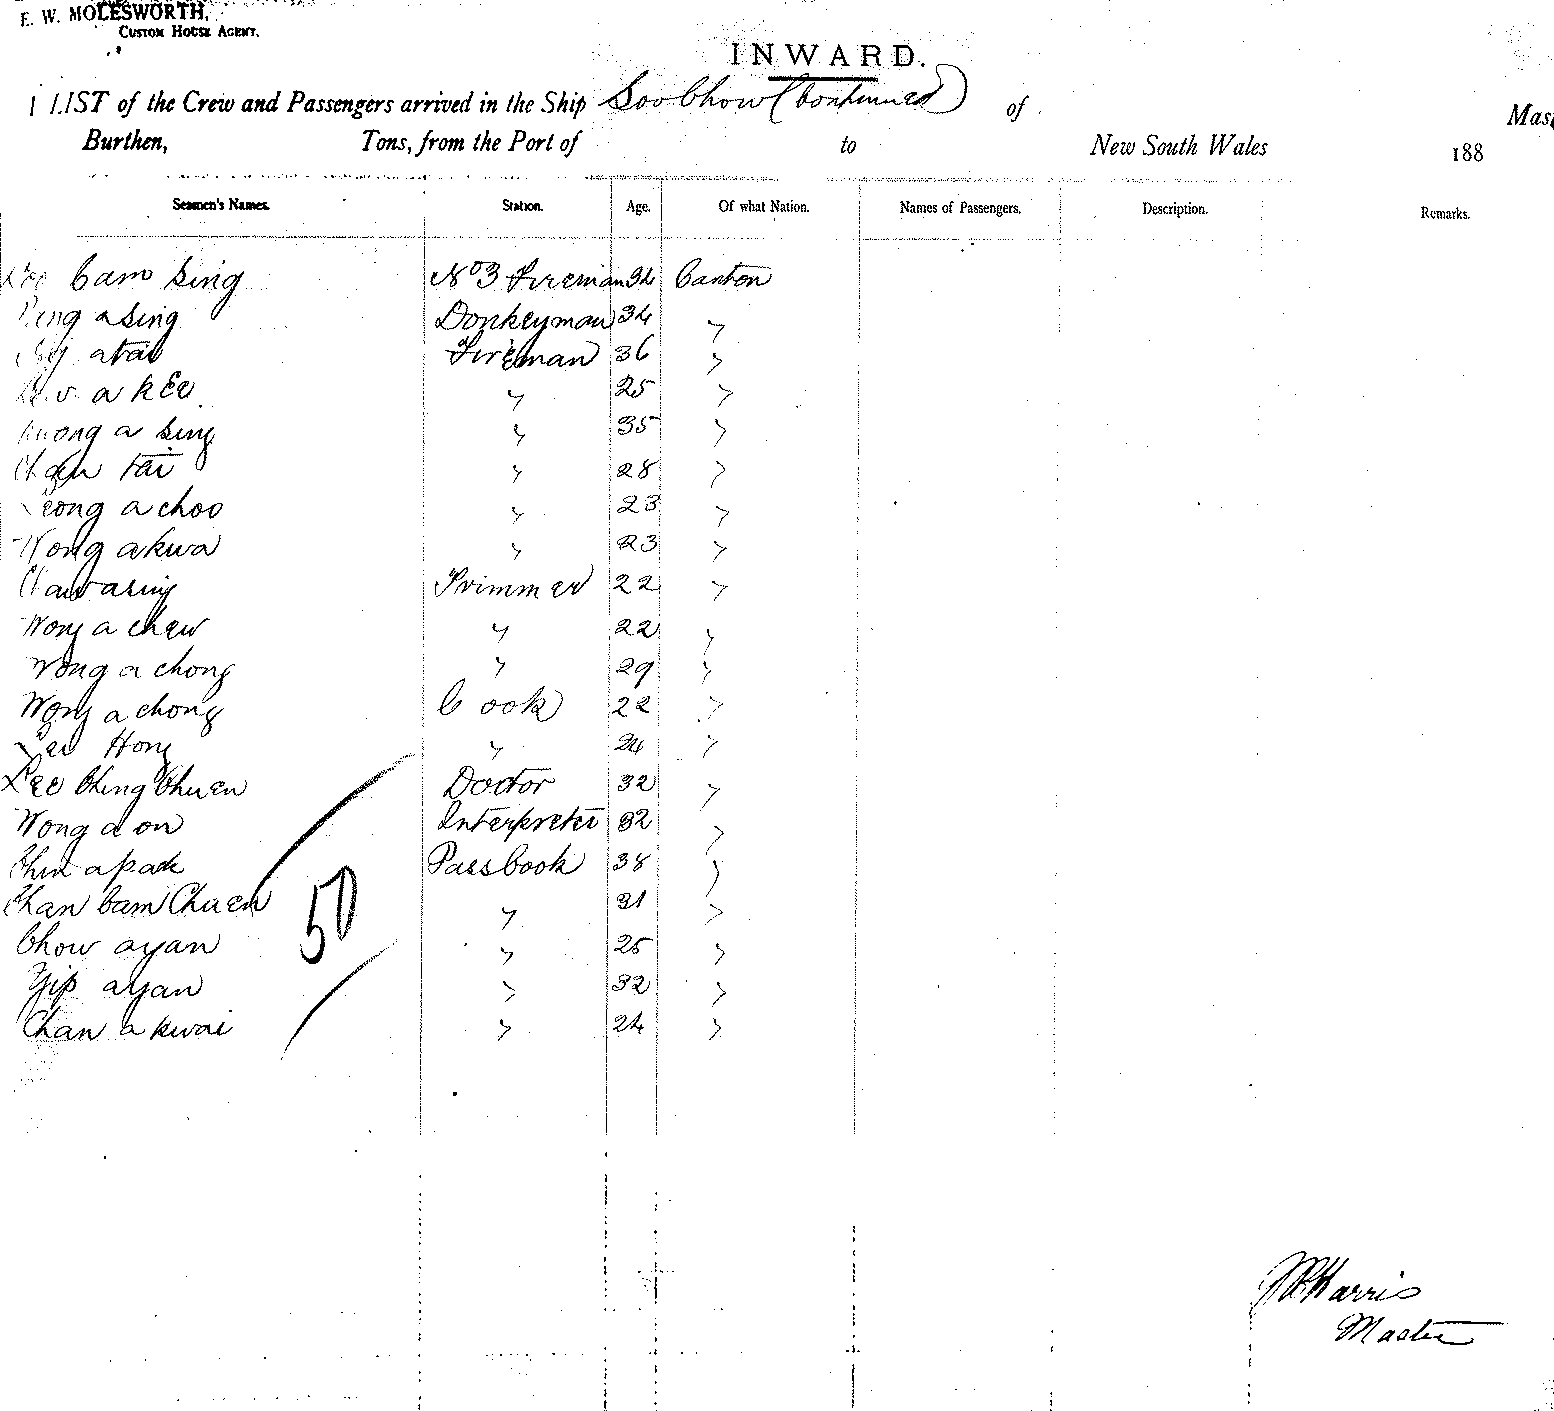 E. W. MOLESWORTH,
CUSTOM HOUSE AGENT.
INWARD.
LIST of the Crew and Passengers arrived in the Ship Soo Chow (Continued) of
Burthen, Tons, from the Port of to New South Wales 188
Seamen's Names. Station. Age. Of what Nation. Names of Passengers. Description. Remarks.
Cam Sing No 3 Fireman 32 Canton
a Sing Donkeyman 34 "
atai Fireman 36 "
a kee " 25 "
a Sing " 35 "
Chan Tai " 28 "
Leong a choo " 23 "
Wong a kwa " 23 "
a sing Trimmer 22 "
Wong a chew " 22 "
Wong a chong " 29 "
Wong a chong Cook 22 "
Hong " 24 "
Lee Ching Chuen Doctor 32 "
Wong a on Interpreter 32 "
Chin a pak Pass Cook 38 "
Chan Cam Chuen " 31 "
Chow ayan " 25 "
Yip ayan " 32 "
Chan a kwai " 24 "
50
Harris
Master